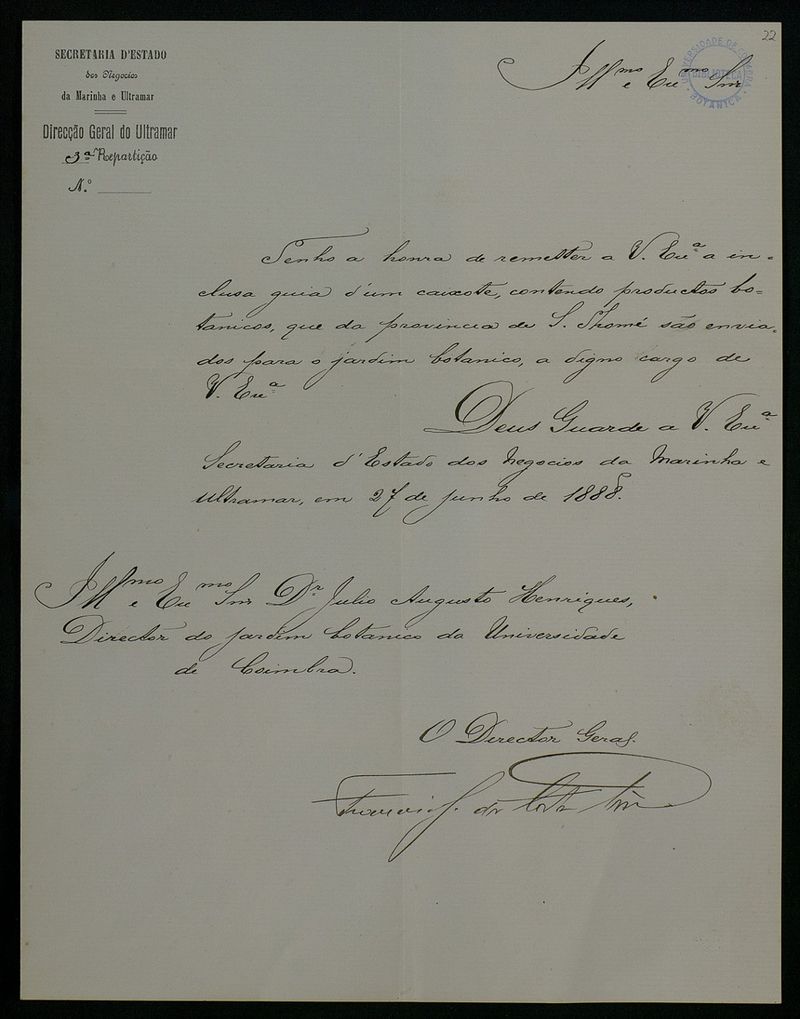 22
SECRETARIA D'ESTADO
dos Negocios
da Marinha e Ultramar
Direcção Geral do Ultramar
3ª Repartição
N.º
UNIVERSIDADE DE COIMBRA
BIBLIOTECA
BOTANICA
Illmo e Exmo Snr
Tenho a honra de remetter a V. Exª a in-
clusa guia d'um caixote, contendo productos bo=
tanicos, que da provincia de S. Thomé são envia-
dos para o jardim botanico, a digno cargo de
V. Exª
Deus Guarde a V. Exª
Secretaria d'Estado dos Negocios da Marinha e
Ultramar, em 27 de junho de 1888.
Illmo e Exmo Snr Dr Julio Augusto Henriques,
Director do jardim botanico da Universidade
de Coimbra.
O Director Geral.
da Costa